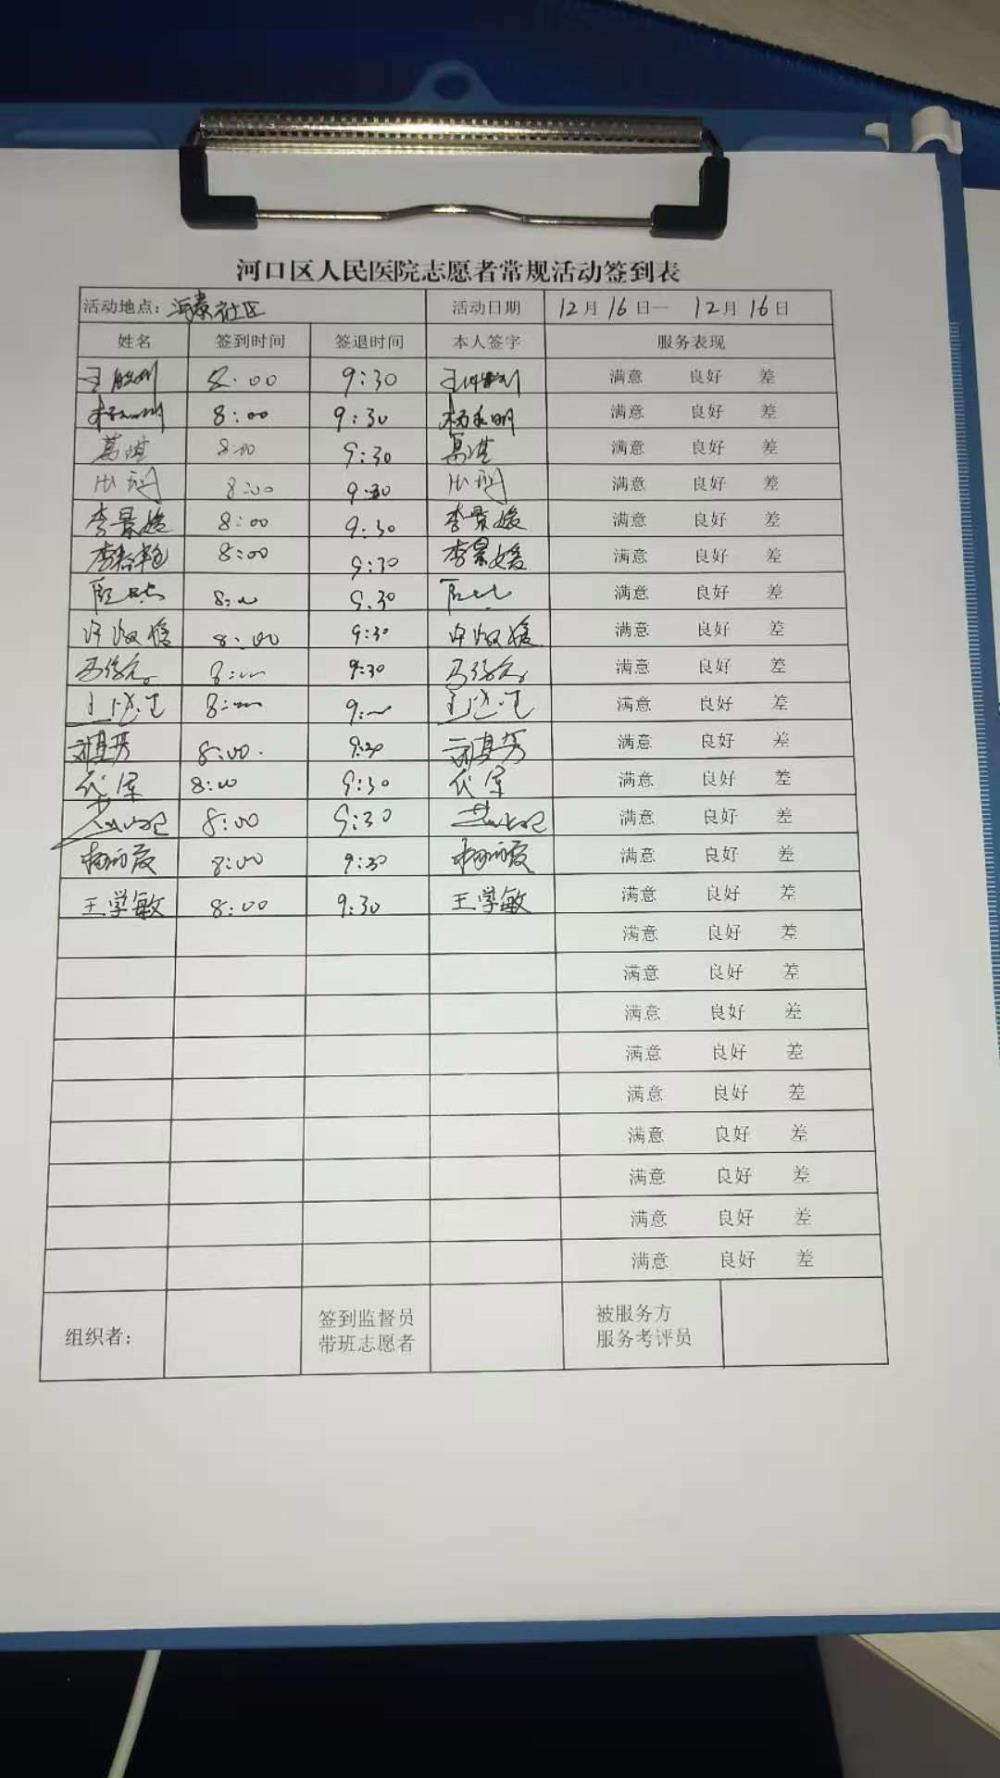 河口区人民医院志愿者常规活动签到表
活动地点: 社区 活动日期 12月16日一 12月16日
姓名 签到时间 签退时间 本人签字 服务表现
8:00 9:30 满意 良好 差
8:00 9:30 满意 良好 差
葛 8:00 9:30 葛 满意 良好 差
8:00 9:30 满意 良好 差
李景媛 8:00 9:30 李景媛 满意 良好 差
李 8:00 9:30 李景媛 满意 良好 差
8:00 9:30 满意 良好 差
许 8:00 9:30 许 满意 良好 差
冯 8:00 9:30 冯 满意 良好 差
王 8:00 9: 王 满意 良好 差
刘 芳 8:00. 9:30 刘 芳 满意 良好 差
代 8:00 9:30 代 满意 良好 差
8:00 9:30 满意 良好 差
杨 8:00 9:30 杨 满意 良好 差
王学敏 8:00 9:30 王学敏 满意 良好 差
满意 良好 差
满意 良好 差
满意 良好 差
满意 良好 差
满意 良好 差
满意 良好 差
满意 良好 差
满意 良好 差
满意 良好 差
组织者: 签到监督员 被服务方
带班志愿者 服务考评员